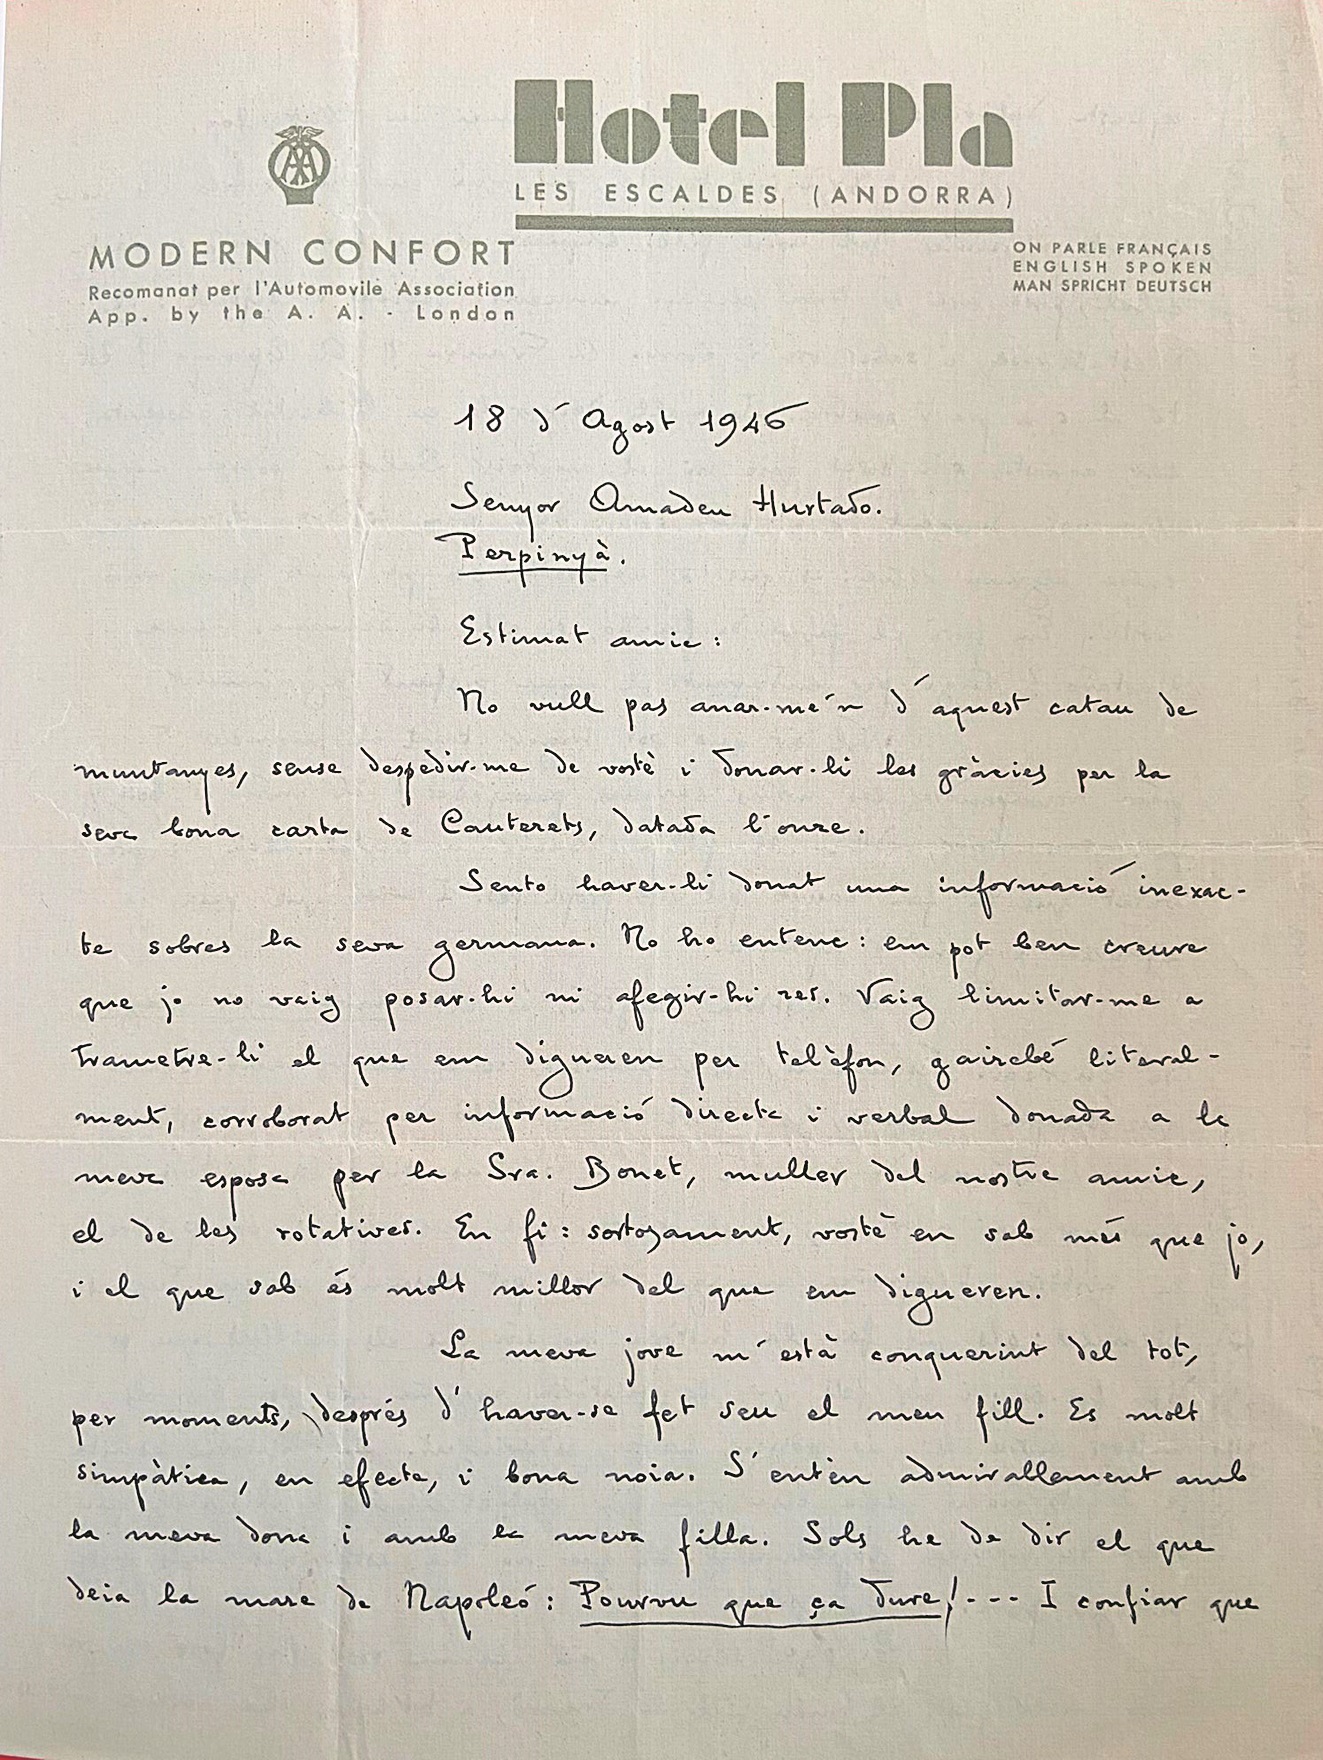 Hotel Pla
LES ESCALDES (ANDORRA)
AA
MODERN CONFORT
Recomanat per l'Automovile Association
App. by the A. A. - London
ON PARLE FRANÇAIS
ENGLISH SPOKEN
MAN SPRICHT DEUTSCH
18 d'Agost 1946
Senyor Amadeu Hurtado.
Perpinyà.
Estimat amic:
No vull pas anar-me'n d'aquest catau de
muntanyes, sense despedir-me de vostè i donar-li les gràcies per la
seva bona carta de Cauterets, datada l'onze.
Sento haver-li donat una informació inexac-
te sobres la seva germana. No ho entenc: em pot ben creure
que jo no vaig posar-hi ni afegir-hi res. Vaig limitar-me a
trametre-li el que em digueren per telèfon, gairebé literal-
ment, corroborat per informació directa i verbal donada a la
meva esposa per la Sra. Bonet, muller del nostre amic,
el de les rotatives. En fi: sortosament, vostè en sab més que jo,
i el que sab és molt millor del que em digueren.
La meva jove m'està conquerint del tot,
per moments, després d'haver-se fet seu el meu fill. Es molt
simpàtica, en efecte, i bona noia. S'entèn admirablement amb
la meva dona i amb la meva filla. Sols he de dir el que
deia la mare de Napoleó: Pourvu que ça dure!--- I confiar que